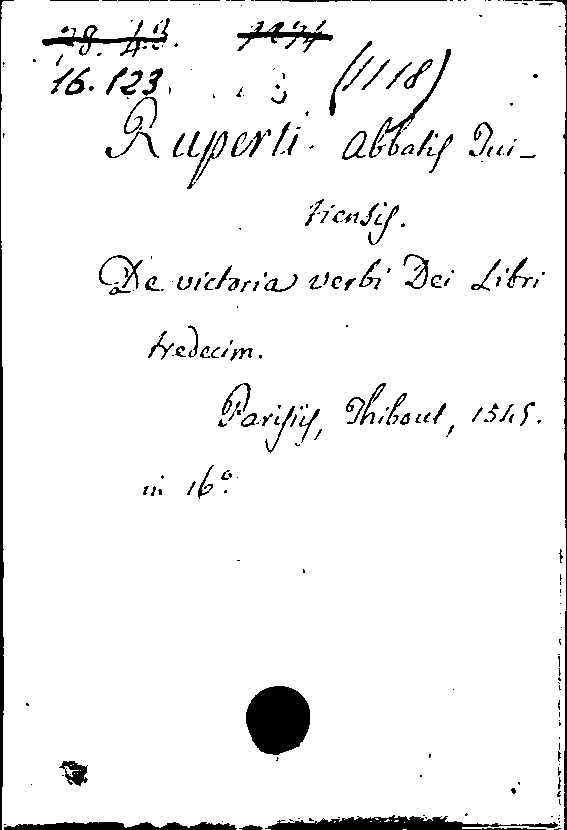 78. 43.
16. 123. (1118)
Ruperti. Abbatis Tui-
tiensis.
De victoria verbi Dei Libri
tredecim.
Parisiis, Thiboul, 1545.
in 16°